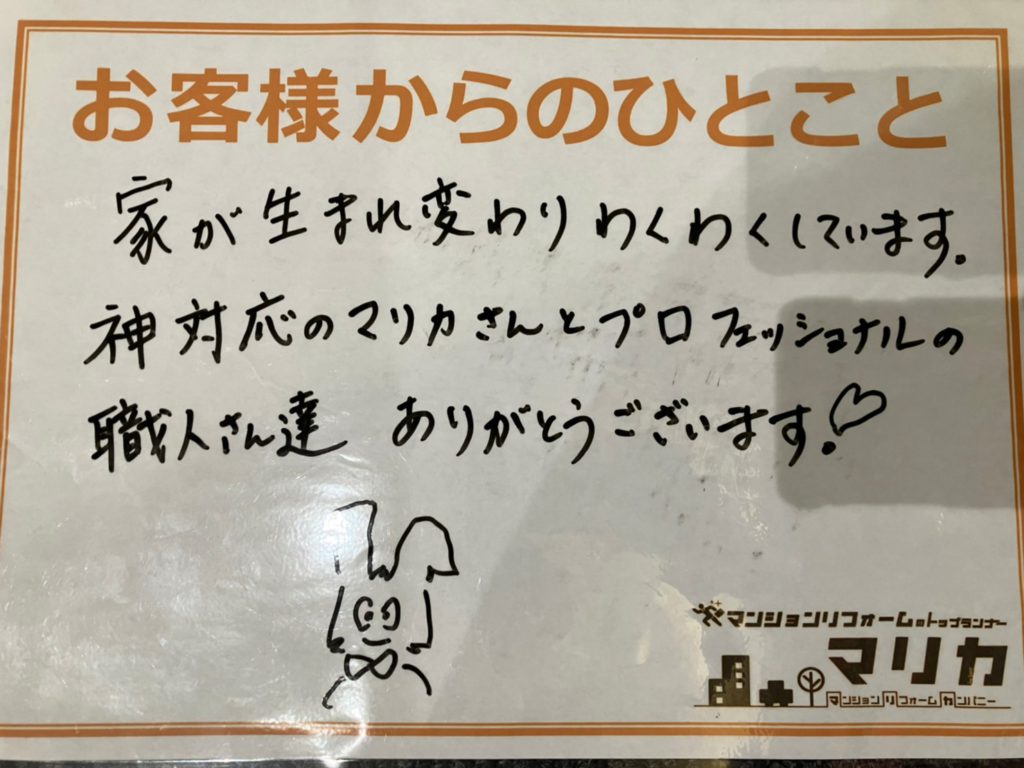 お客様からのひとこと
家が生まれ変わりわくわくしています.
神対応のマリカさんとプロフェッショナルの
職人さん達 ありがとうございます.♡
マンションリフォームのトップランナー
マリカ
マンションリフォームカンパニー